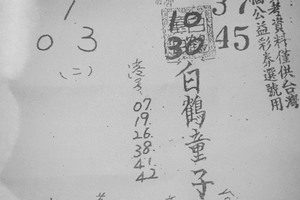 資料僅供台灣
公益彩券選號用
37
45
10
30
白鶴童子
07.
19.
26.
38.
41.
42
0 3
(二)